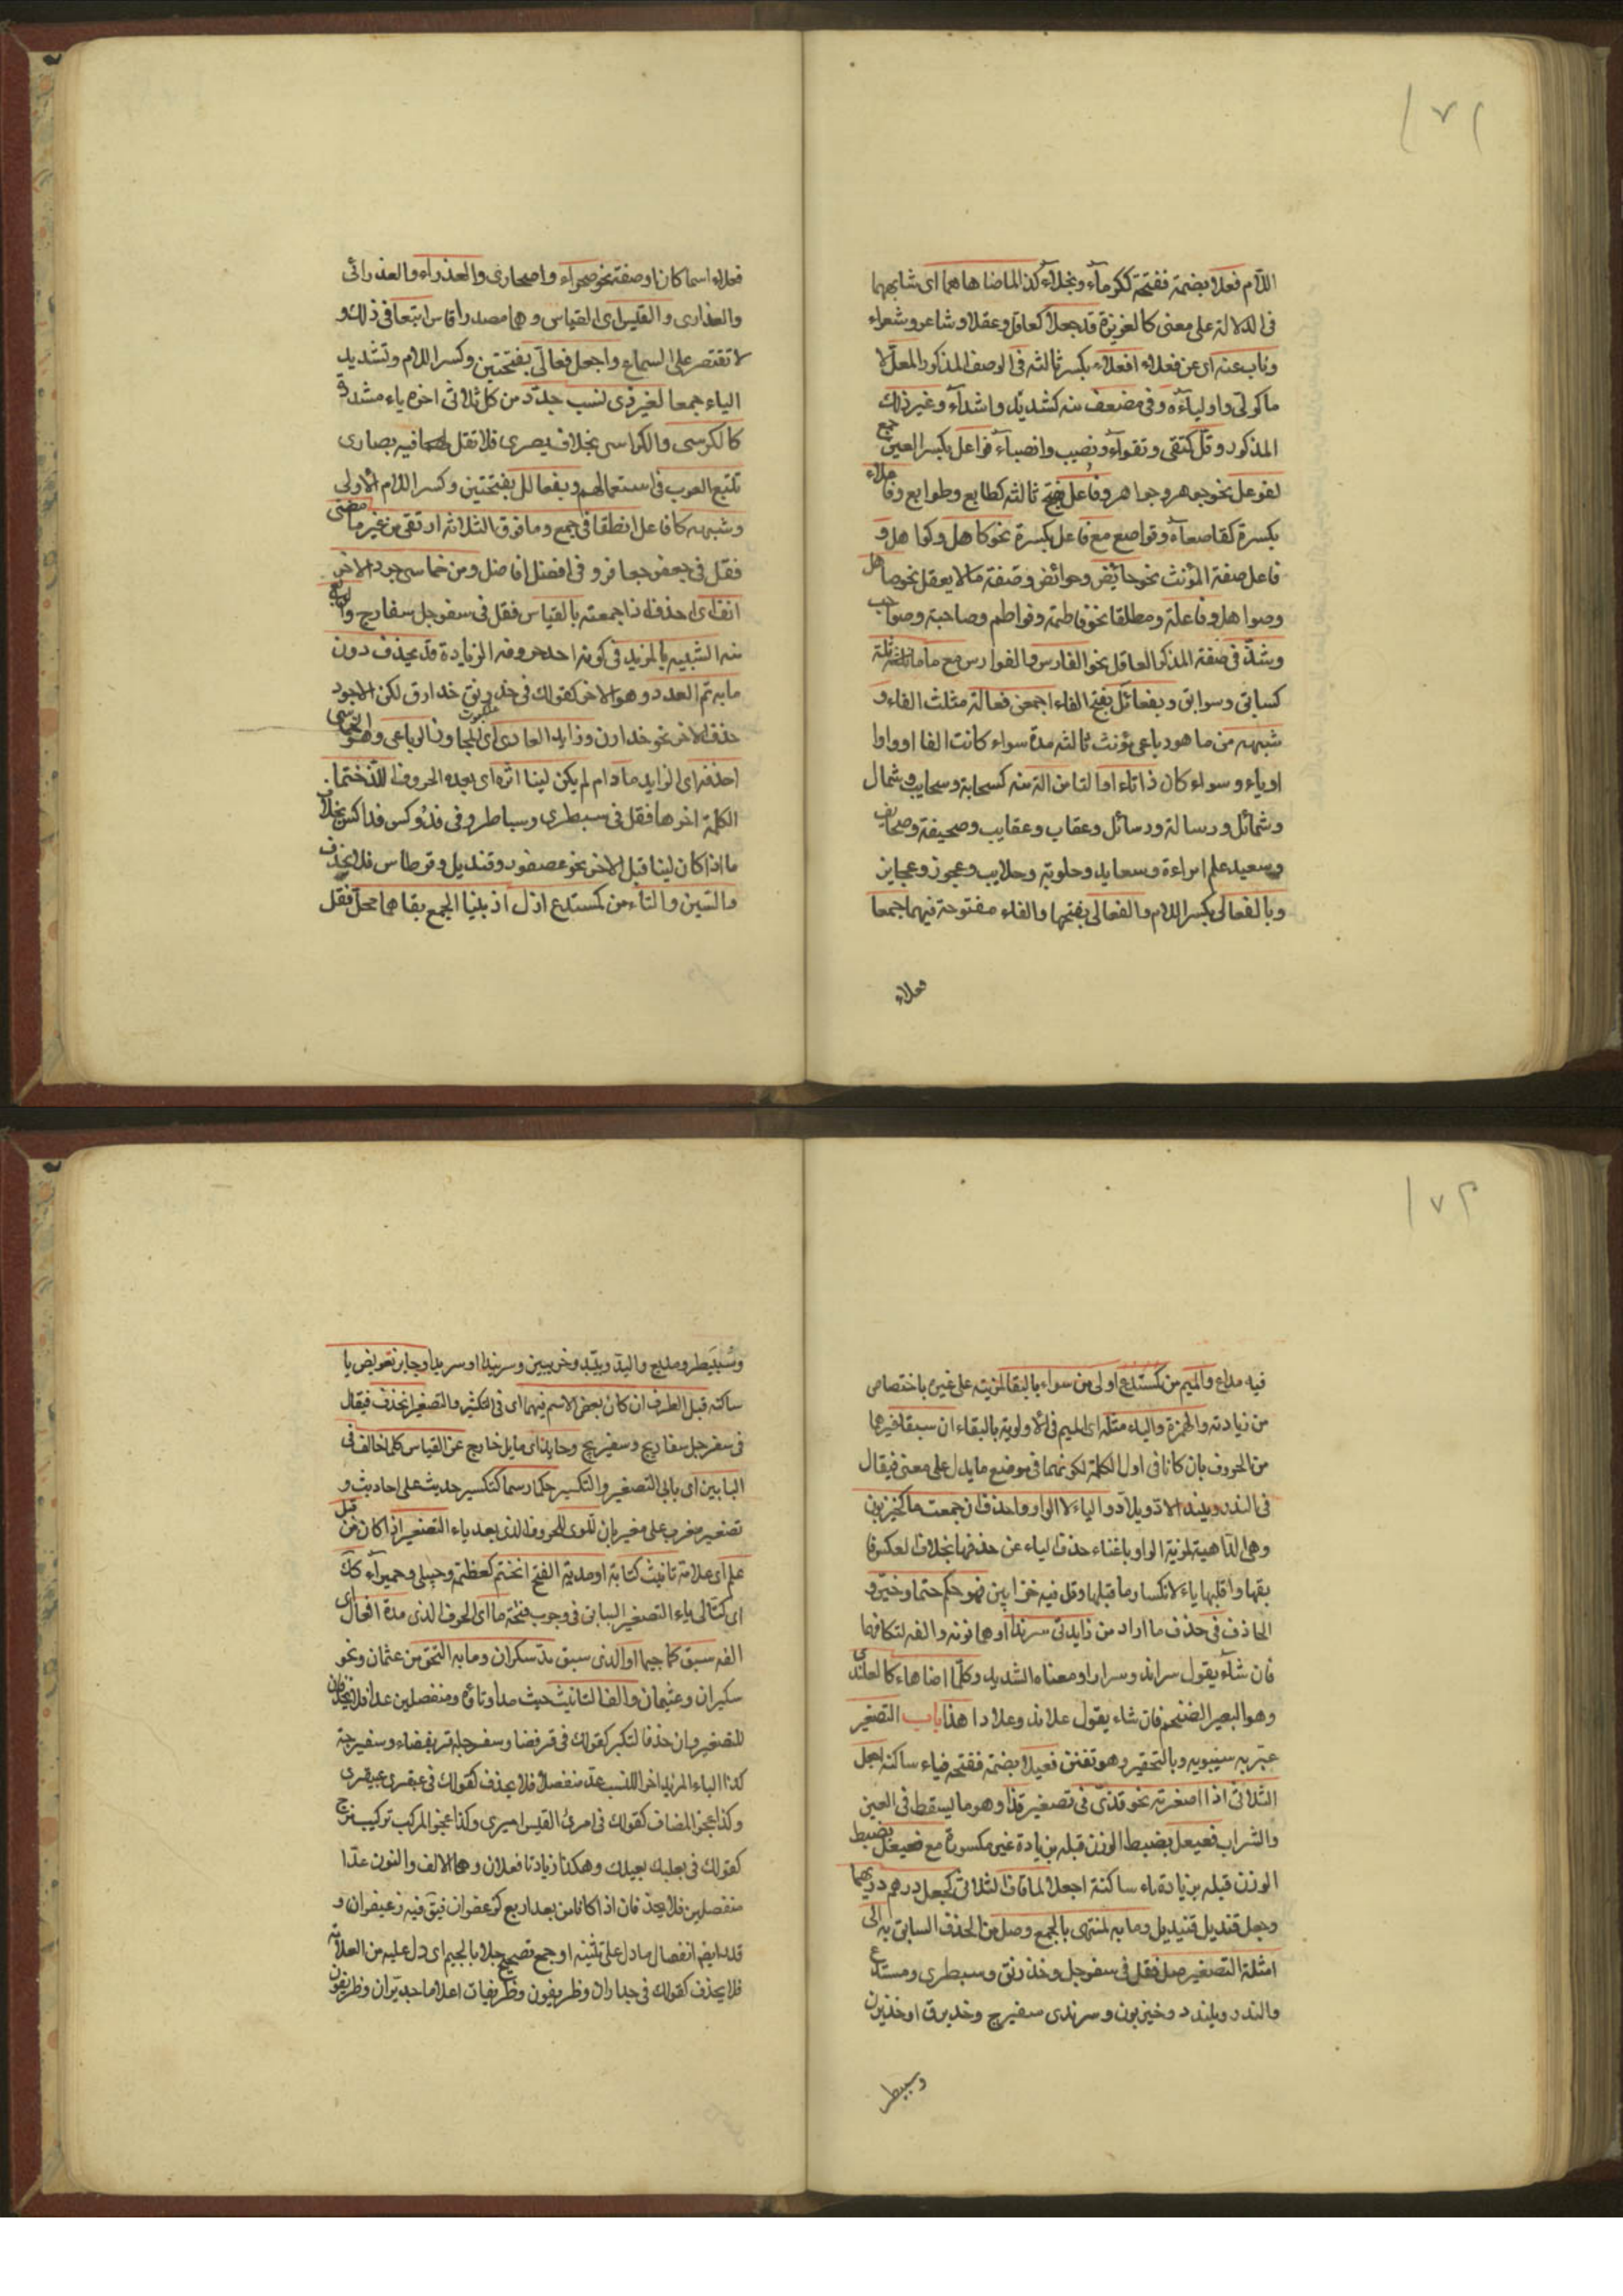 ١٧١
اللام فعلا بضمة ففتحة ككرماء وبخلاء كذا لما ضاهاهما اى شابههما
فى الدلالة على معنى كالغريزة قد جعلا كعاقل وعقلا وشاعر وشعراء
وناب عنه اى عن فعلاء افعلاء بكسر ثالثه فى الوصف المذكور المعل لا
ما كولى واولياءه وفى مضعف منه كشديد واشداء وغير ذلك
المذكور وقل كتقى وتقواء ونصيب وانصباء فواعل بكسر العين جمع
لفوعل نحو جوهر وجواهر وفاعل بفتح ثالثه كطابع وطوابع وفاعلاء
بكسرة كقاصعاء وقواصع مع فاعل بكسرة نحو كاهل وكواهل و
فاعل صفة المؤنث نحو حائض وحوائض وصفة ما لا يعقل نحو صاهل
وصواهل وفاعلة ومطلقا نحو فاطمة وفواطم وصاحبة وصواحب
وشذ فى صفة المذكر العاقل نحو الفارس والفوارس مع ما ماثله
كسابق وسوابق وبفعائل بفتح الفاء اجمعن فعالة مثلث الفاء و
شبهه من ما هو رباعى مؤنث ثالثه مدة سواء كانت الفا اوواوا
اوياء وسواء كان ذا تاء او التا من الة منه كسحابة وسحايب وشمال
وشمائل ورسالة ورسائل وعقاب وعقايب وصحيفة وصحايف
وسعيد علم امراءة وسعايد وحلوبة وحلايب وعجوز وعجايز
وبالفعالى بكسر اللام والفعالى بفتحها والفاء مفتوحة فيهما جمعا
فعلاء
فعلاء اسما كان او صفة نحو صحراء واصحارى والعذراء والعذرائى
والعذارى والقيس اى القياس وهما مصدرا قاس اتبعا فى ذلك و
لا تقتصر على السماع واجعل فعالى بفتحتين وكسر اللام وتشديد
الياء جمعا لغير ذى نسب جدد من كل ثلاثى اخره ياء مشددة
كالكرسى والكراسى بخلاف بصرى فلا تقل فيه بصارى
تتبع العرب فى استعمالهم وبفعالل بفتحتين وكسر اللام الاولى
وشبهه كافاعل انطقا فى جمع وما فوق الثلاثة ارتقى من غير ما مضى
فقل فى جعفر جعافر وفى افضل افاضل ومن خماسى جرد الاخر
انف اى احذف اذا جمعته بالقياس فقل فى سفرجل سفارج والرابع
منه الشبيه بالمزيد فى كونه احد حروف الزيادة قد يحذف دون
ما به تم العدد وهو الاخر كقولك فى خدرنق خدارق لكن الاجود
حذف الاخر نحو خدارن وزايد العادى اى المجاوز الرباعى وهو الخماسى
احذفه اى الزايد ما دام لم يكن لينا اثره اى بعده الحرف اللذ ختما
الكلمة اخرها فقل فى سبطرى وسباطر وفى فدوكس فداكس بخلاف
ما اذا كان لينا قبل الاخر نحو عصفور وقنديل وقرطاس فلا يحذف
والسين والتاء من كمستدع ازل اذ ببنا الجمع بقاهما مخل فقل
١٧٢
فيه مداع والميم من كمستدع اولى من سواه بالبقا لمزيته على غيره باختصاص
من زيادته والهمزة والياء مثله اى الميم فى الاولوية بالبقاء ان سبقا غيرهما
من الحروف بان كانا فى اول الكلمة لكونهما فى موضع ما يدل على معنى فيقال
فى الندد ويلندد الاد ويلاد والياء لا الواو احذف ان جمعت ما كحيزبون
وهى الداهية لمزية الواو باغناء حذف الياء عن حذفها بخلاف العكس فا
بقها واقلبها ياء لانكسار ما قبلها وقل فيه حزابين فهو حكم حتما وخير و
الحاذف فى حذف ما اراد من زايدى سرندا وهما نونه والفه لتكافهما
فان شاء يقول سراند وسرارا ومعناه الشديد وكلما ضاهاه كالعلندى
وهو البعير الضخم فان شاء يقول علاند وعلادا هذا باب التصغير
عبر به سيبويه وبالتحقير وهو تفنن فعيلا بضمة ففتحة فياء ساكنة اجعل
الثلاثى اذا صغرته نحو قذى فى تصغير قذا وهو ما يسقط فى العين
والشراب فعيعل بضبط الوزن قبله بزيادة عين مكسورة مع فعيعيل بضبط
الوزن قبله بزيادة ياء ساكنة اجعلا لما فاق الثلاثى كجعل درهم دريهما
وجعل قنديل قنيديل وما به لمنتهى بالجمع وصل من الحذف السابق به الى
امثلة التصغير صل فقل فى سفرجل وخدرنق وسبطرى ومستدع
والندد ويلندد وحيزبون وسرندى سفيرج وخديرق او خديرن
وسبيطر
وسبيطر ومديع واليد ويليد وحزيبين وسرينداوسريدا وجايز تعويض يا
ساكنة قبل الطرف ان كان بعض الاسم فيهما اى فى التكثير والتصغير انحذف فيقال
فى سفرجل سفاريج وسفيريج وحايد اى مايل خارج عن القياس كلما خالف فى
البابين اى بابى التصغير والتكسير حكما رسما كتكسير حديث على احاديث و
تصغير مغرب على مغيربان لتلوى للحرف الذى بعد ياء التصغير اذا كان من قبل
علم اى علامة تانيث كتابه او مدته الفتح انحتم كعظيمة وحبيلى وحميراء كذاك
اى كتالى ياء التصغير السابق فى وجوب فتحة ما اى الحرف الذى مدة افعال اى
الفه سبق كما جيما او الذى سبق مد سكران وما به التحق من عثمان ونحو
سكيران وعثيمان والف التانيث حيث مدا وتاؤه ومنفصلين عدا فلا يحذفان
للتصغير وان حذفا لتكبر كقولك فى قرفصا وسفرجلة قريفصاء وسفيرجة
كذا الياء المزيد اخر اللنسب عد منفصلا فلا يحذف كقولك فى عبقرى عبيقرى
وكذا عجز المضاف كقولك فى امرئ القيس اميرى وكذا عجز المركب تركيب مزج
كقولك فى بعلبك بعيلبك وهكذا زيادتا فعلان وهما الالف والنون عدا
منفصلين فلا يحذفان اذا كانا من بعد اربع كزعفران فيق فيه زعيفران و
قدر ايض انفصال ما دل على تثنية او جمع تصحيح جلا بالجيم اى دل عليه من العلامة
فلا يحذف كقولك فى جداران وظريفون وظريفات اعلاما جديران وظريفون